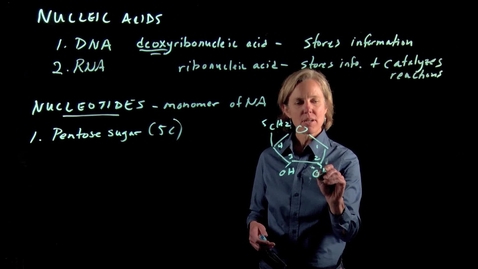 NUCLEIC ACIDS
1. DNA deoxyribonucleic acid – Stores information
2. RNA ribonucleic acid – stores info. + catalyzes reactions
NUCLEOTIDES – monomer of NA
1. Pentose sugar (5C)
5 CH2 O
4 1
3 2
OH OH